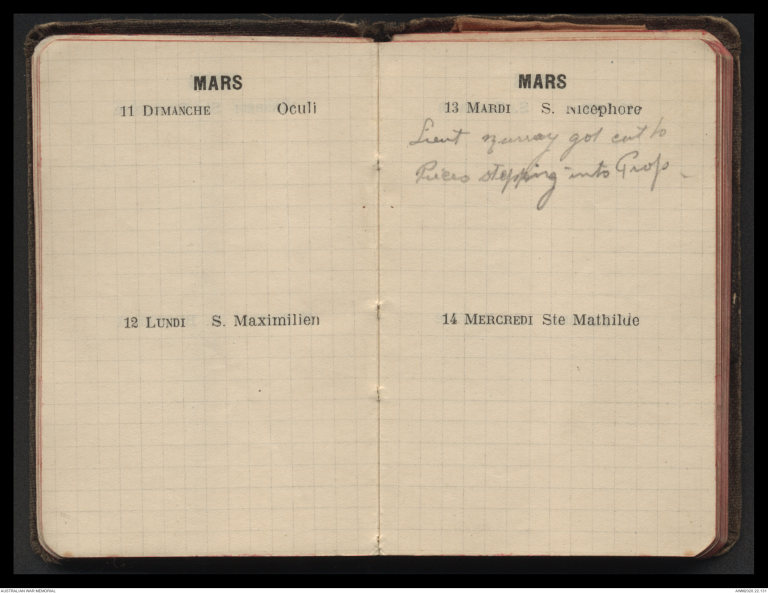 MARS
11 DIMANCHE Oculi
12 LUNDI S. Maximilien
MARS
13 MARDI S. Nicephore
Lieut Murray got cut to
Pieces stepping into Prop
14 MERCREDI Ste Mathilde
AUSTRALIAN WAR MEMORIAL